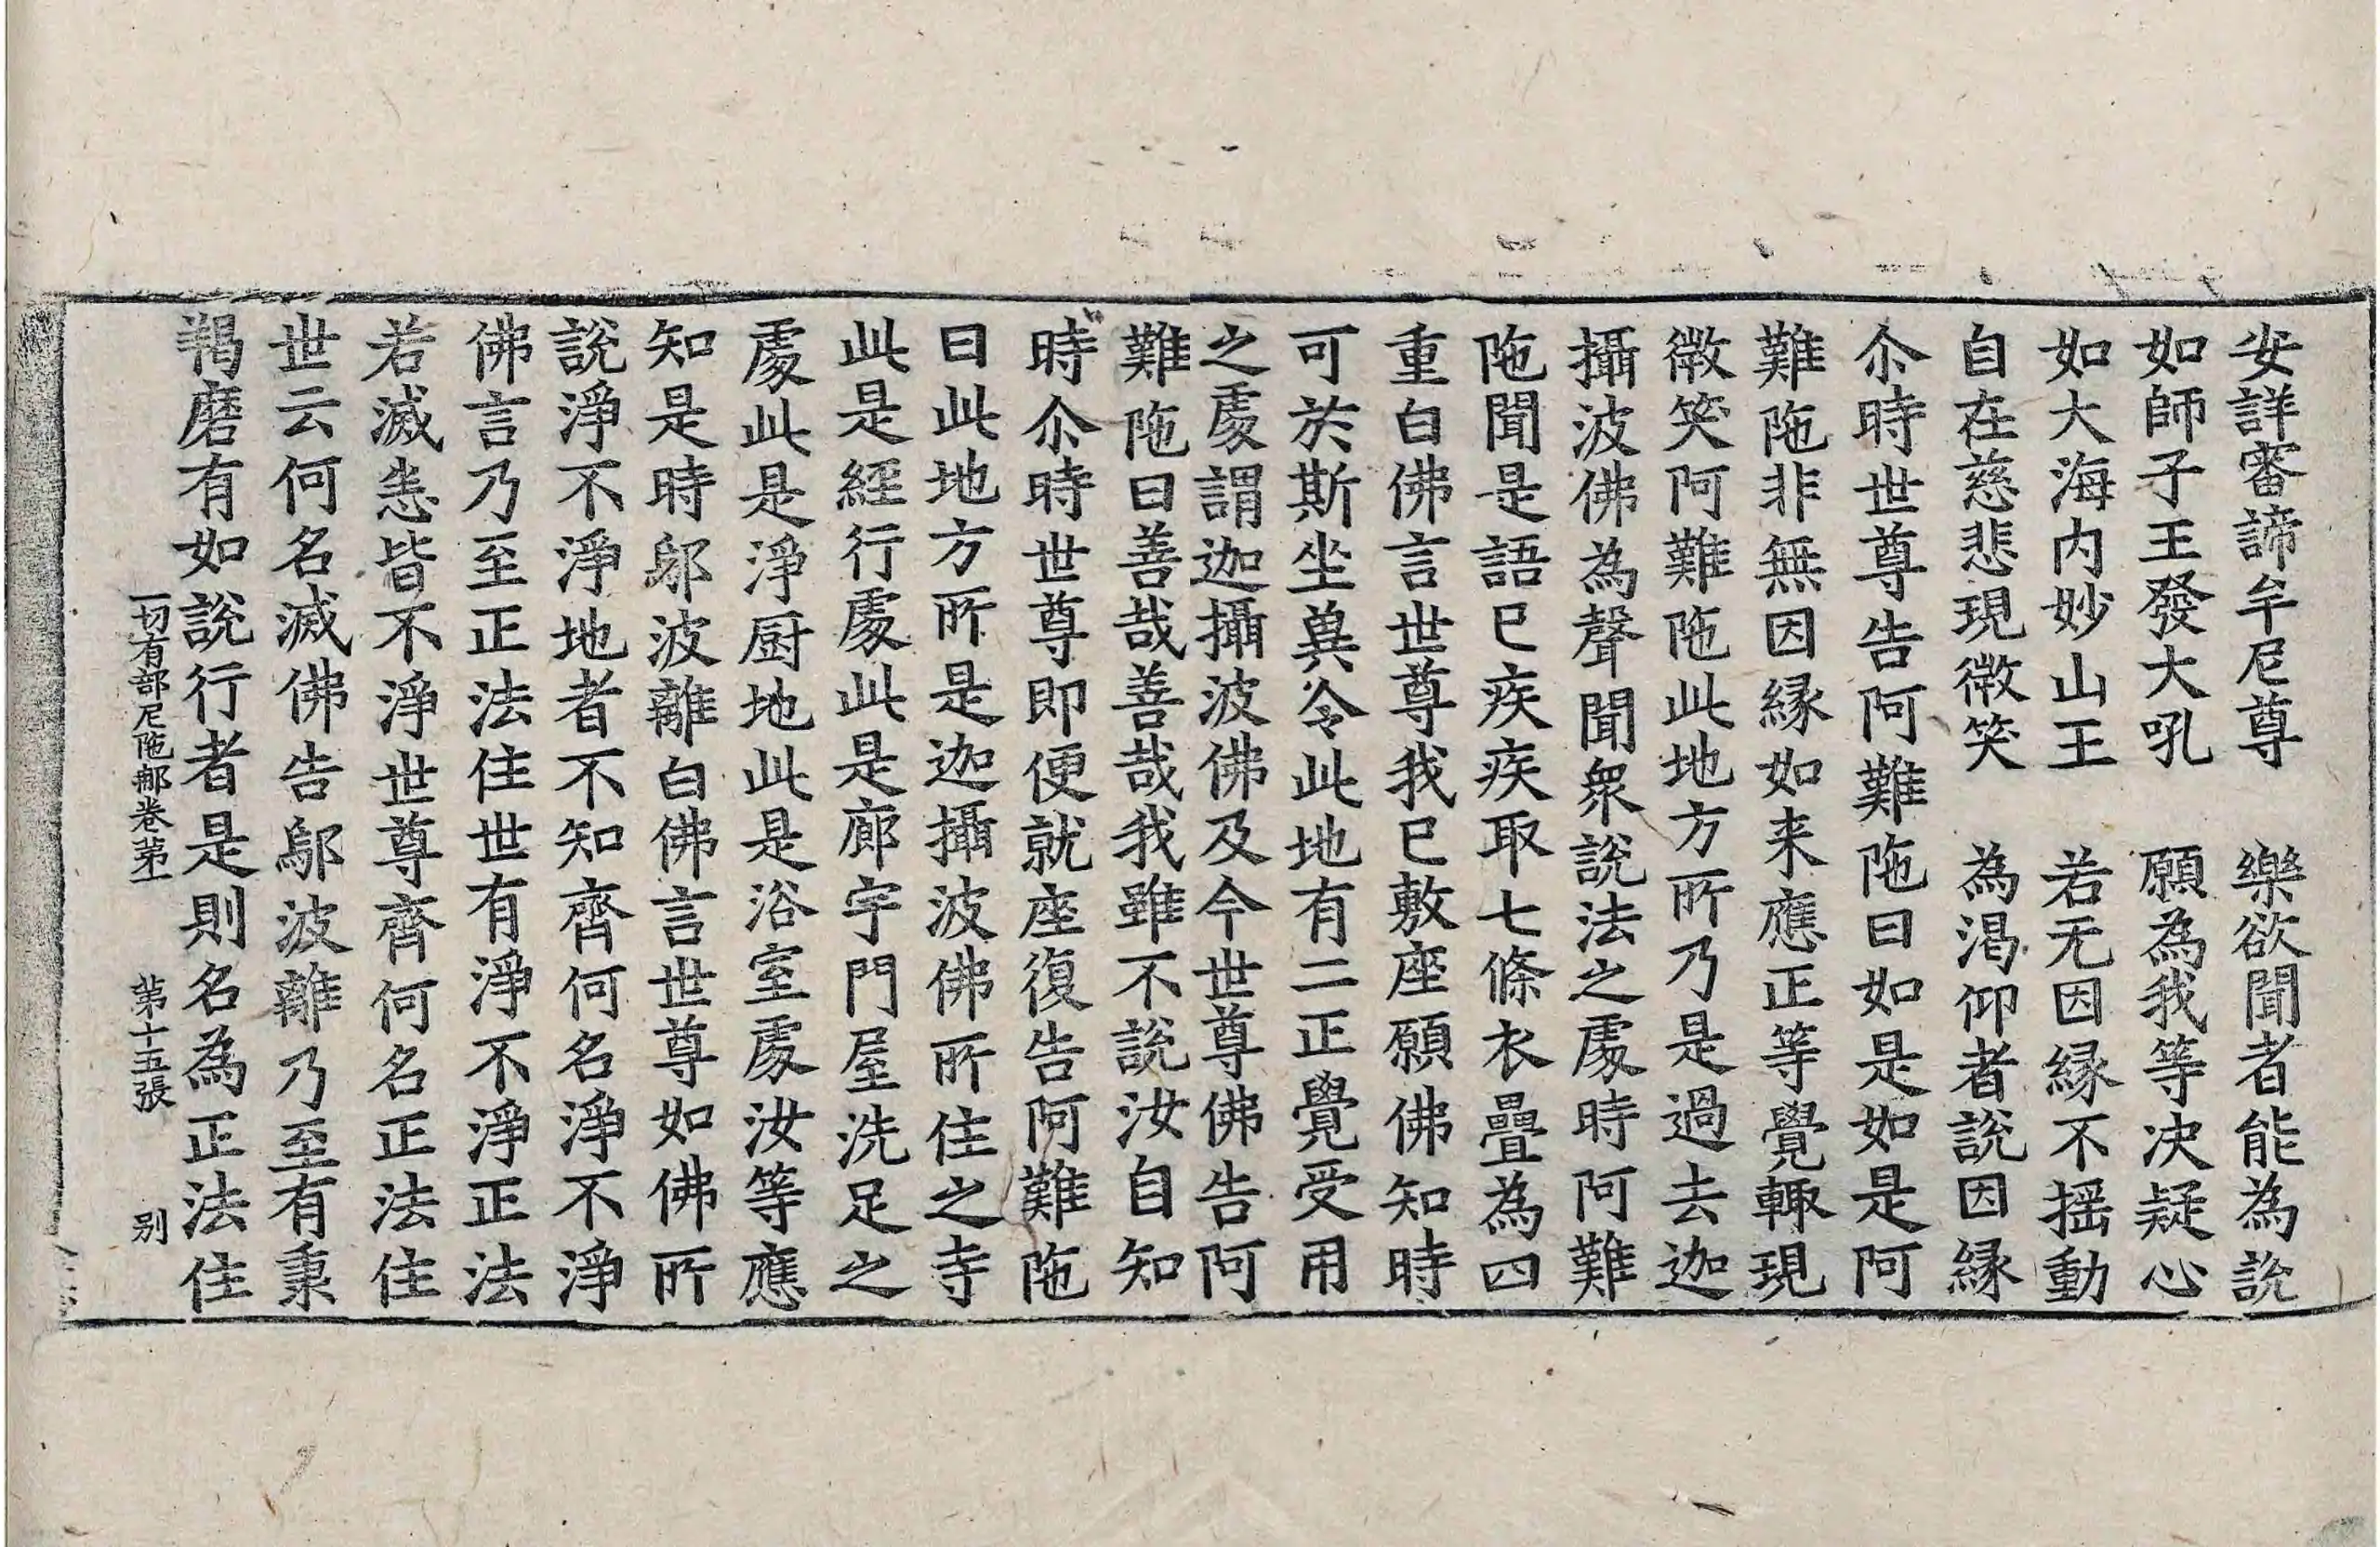 安詳審諦牟尼尊　樂欲聞者能為說
如師子王發大吼　願為我等決疑心
如大海内妙山王　若无因縁不揺動
自在慈悲現微笑　為渴仰者說因縁
尒時世尊告阿難陁曰如是如是阿
難陁非無因縁如来應正等覺輙現
微笑阿難陁此地方所乃是過去迦
攝波佛為聲聞衆說法之處時阿難
陁聞是語已疾疾取七條衣疊為四
重白佛言世尊我已敷座願佛知時
可於斯坐兾令此地有二正覺受用
之處謂迦攝波佛及今世尊佛告阿
難陁曰善哉善哉我雖不說汝自知
時尒時世尊即便就座復告阿難陁
曰此地方所是迦攝波佛所住之寺
此是經行處此是廊宇門屋洗足之
處此是淨厨地此是浴室處汝等應
知是時鄔波離白佛言世尊如佛所
說淨不淨地者不知齊何名淨不淨
佛言乃至正法住世有淨不淨正法
若滅悉皆不淨世尊齊何名正法住
世云何名滅佛告鄔波離乃至有秉
羯磨有如說行者是則名為正法住
一切有部尼陁那卷苐一　苐十五張　别